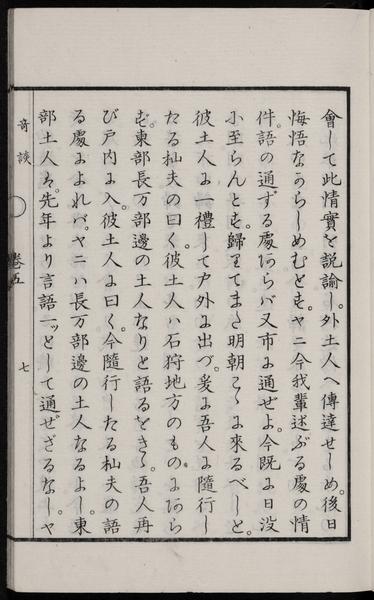 會して此情實を説諭し。外土人へ傳達せしめ。後日
悔悟なからしめむとす。ヤニ今我輩述ぶる處の情
件。語の通ずる處あらバ又市に通ぜよ。今既に日没
に至らんとす。歸りてまた明朝こゝに來るべしと。
彼土人に一禮して戸外に出づ。爰に吾人に隨行し
たる杣夫の曰く。彼土人ハ石狩地方のものにあら
ず。東部長万部邊の土人なりと語るをきゝ。吾人再
び戸内に入。彼土人に曰く。今隨行したる杣夫の語
る處によれバ。ヤニハ長万部邊の土人なるよし。東
部土人は。先年より言語一ッとして通ぜざるなし。ヤ
奇談
卷五
七